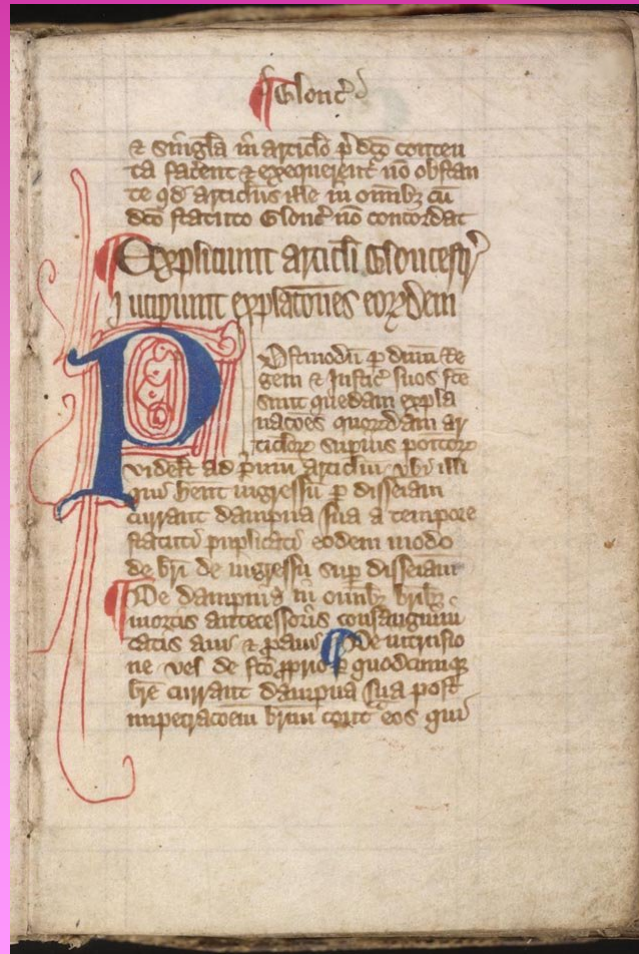 ¶ Glouc̄
& singl̃a in articlo p̄dc̄o conten
ta faceñt & exequereñt nō obstan
te qd̃ articlus ille in omībꝫ cū
dc̄o statuto Glouc̄ nō concordat
¶ Expliciunt articl̃i Gloucestr̃
Incipiunt expl̃acōnes eorꝝdem
Postmodū ꝑ dn̄m Re
gem & Justic̄ suos fc̄e
sunt quedam expla
nac̄oes quorūdam ar
ticlorꝝ suꝑius poitorꝝ
videlt̃ ad p̄mū articlm̄ vbi illi
qui hent ingressū ꝑ disseiam
currant dampna sua a tempore
statuti puplicati eodem modo
de br̄i de ingressū suꝑ disseiam
¶ De dampnis in omībꝫ br̄ibꝫ
mortis antecessoris consanguini
tatis aui & ꝓaui ¶ De intrusio
ne vel de fc̄o ꝓprio ꝑ quodcumqꝫ
br̄e currant dampna sua post
impetrac̄oem br̄ium cont̃ eos qui